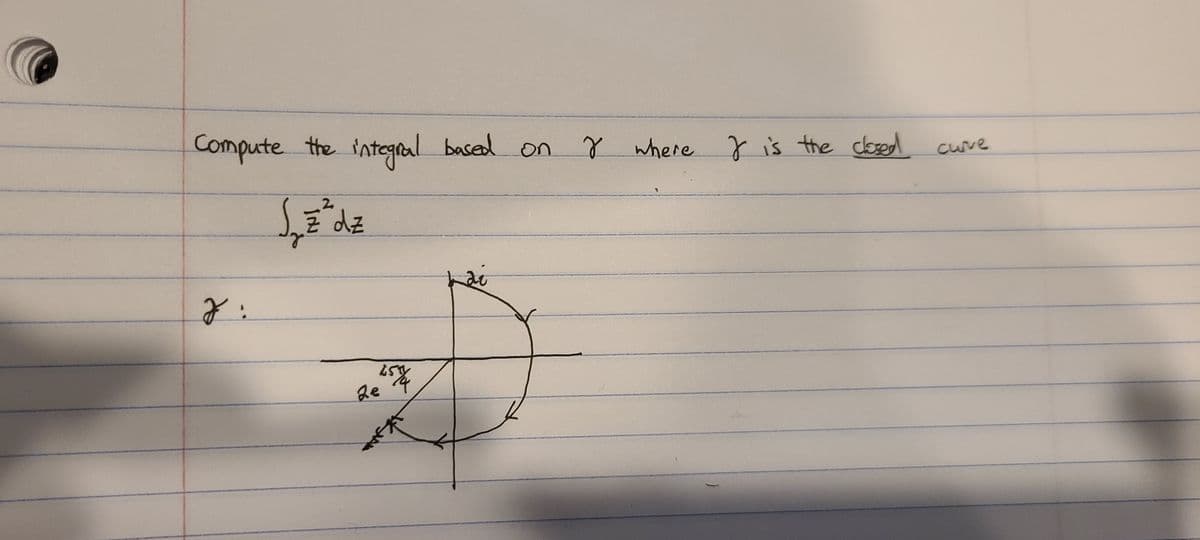 Compute the integral based on γ where γ is the closed curve
∫_γ z̄² dz
2i
γ :
2e^{i5π/4}